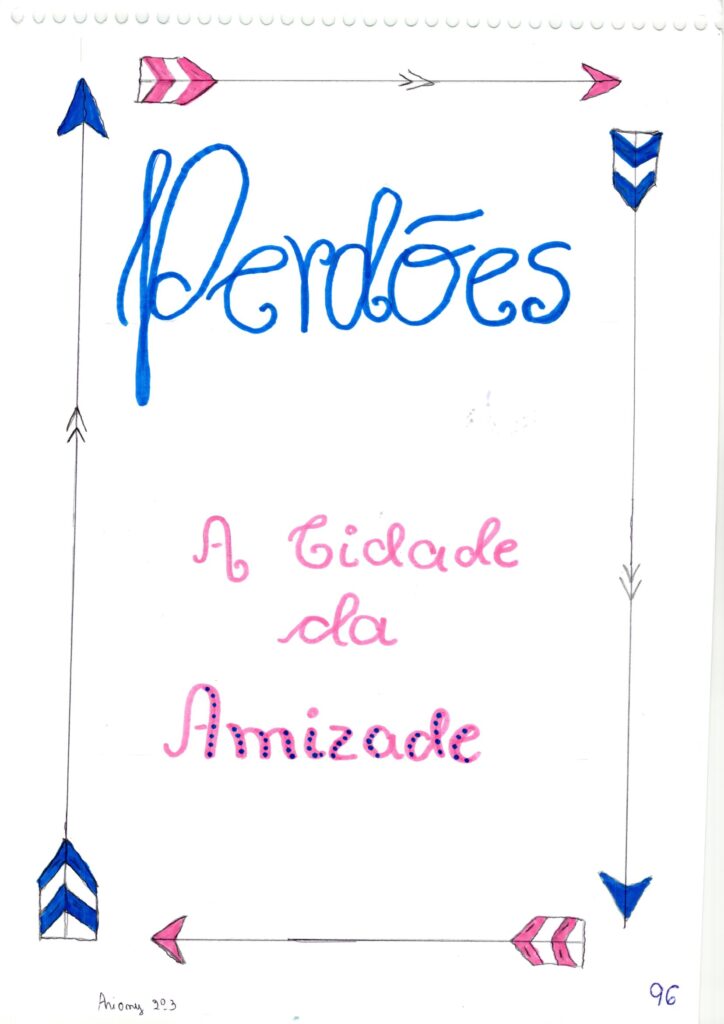 Perdões
A Cidade
da
Amizade
2º3
96